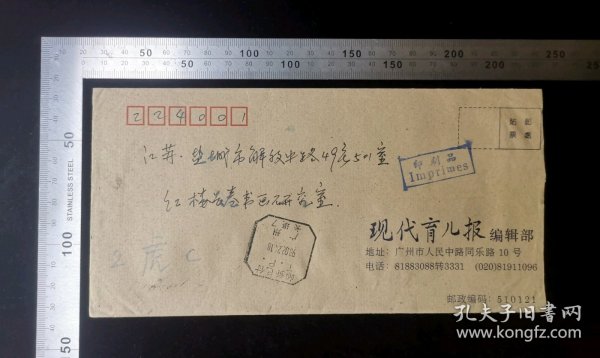 224001
贴邮
票处
江苏·盐城市解放中路49号501室
印刷品
Imprimes
红楼昌春书画研究室.
现代育儿报 编辑部
地址：广州市人民中路同乐路 10 号
电话：81883088转3331 (020)81911096
邮政编码：510121
虎 C
孔夫子旧书网
www.kongfz.com
STAINLESS STEEL
50
100
150
200
250
50
100
150
200
50
100
50